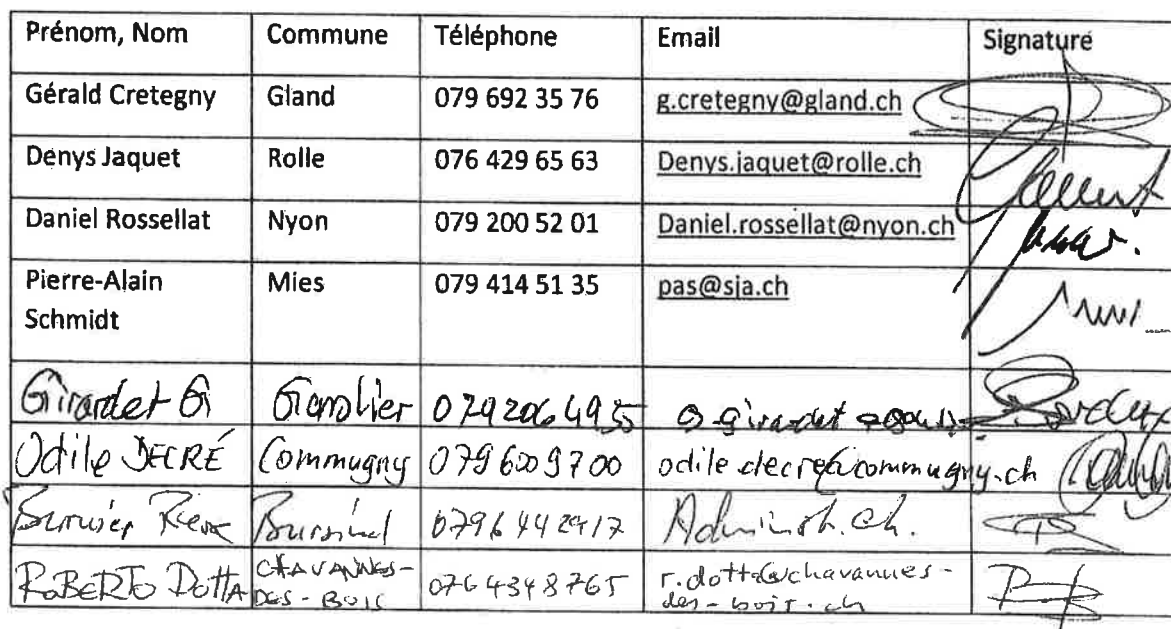 Prénom, Nom Commune Téléphone Email Signature
Gérald Cretegny Gland 079 692 35 76 g.cretegny@gland.ch
Denys Jaquet Rolle 076 429 65 63 Denys.jaquet@rolle.ch
Daniel Rossellat Nyon 079 200 52 01 Daniel.rossellat@nyon.ch
Pierre-Alain Mies 079 414 51 35 pas@sja.ch
Schmidt
Girardet G Genolier 079 206 49 35
Odile DECRÉ Commugny 079 600 97 00 odile.decre@commugny.ch
Bursinel 079 644 29 17
ROBERTO DOTTA CHAVANNES- 076 434 87 65 r.dotta@chavannes-
DES-BOIS des-bois.ch